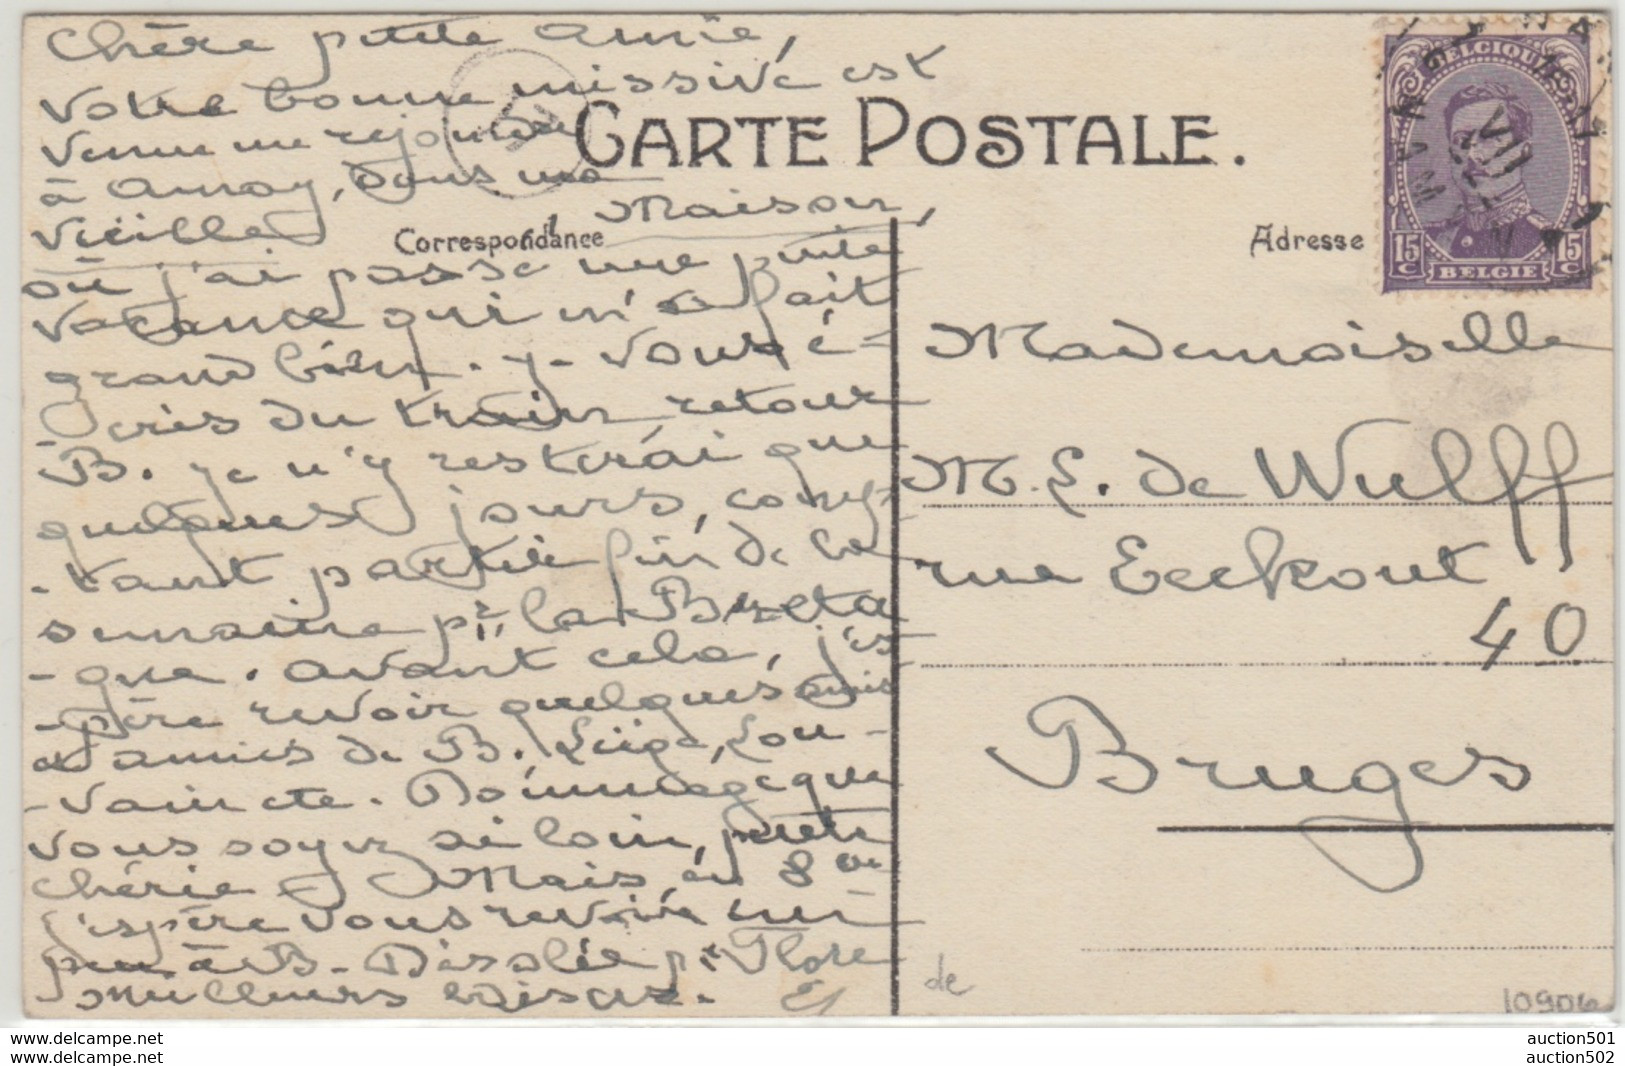 Chère petite amie,
Votre bonne missive est
venue me rejoindre
à Amay, dans ma
vieille maison,
où j'ai passé une petite
vacance qui m'a fait
grand bien. Je vous é-
cris du train, retour
B. Je n'y resterai que
quelques jours, comp-
-tant partir fin de la
semaine pr la Breta
-gne. Avant cela, j'es
-père revoir quelques amis
et amies de B. Liège, Lou-
-vain etc. Dommage que
vous soyez si loin, petite
chérie. Mais, en 8bre
j'espère vous revoir un
peu à B. Désolée pr Flore
Meilleurs baisers.
CARTE POSTALE.
Correspondance
Adresse
BELGIQUE
15 C
15 C
BELGIË
VII
Mademoiselle
M. L. de Wulff
rue Eeckout
40
Bruges
de
10906
auction501
auction502
auction501
auction502